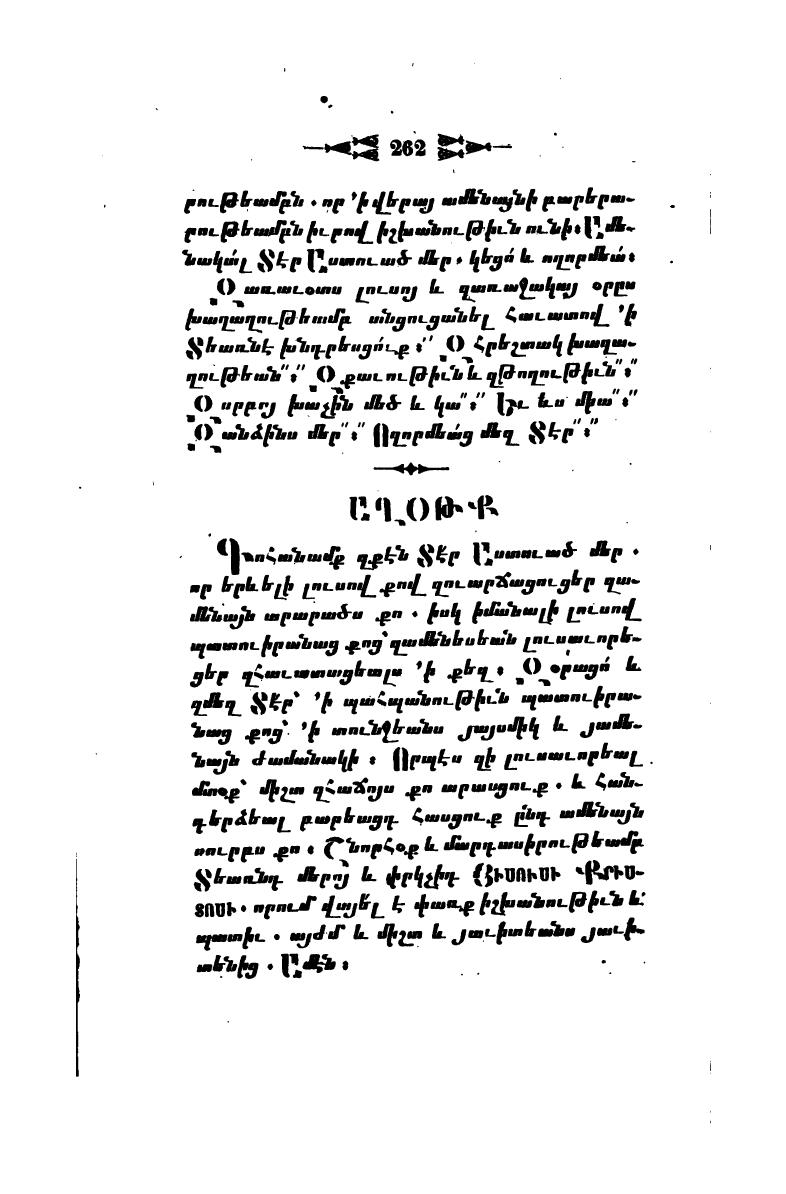 262
րութեամբն . որ 'ի վերայ ամենայնի բարերա-
րութեամբն իւրով իշխանութիւն ունի։ Ամե-
նակա՛լ Տէր Աստուած մեր, կեցո՛ և ողորմեա՛։
Զառաւօտս լուսոյ և զառաջակայ օրըս
խաղաղութեամբ անցուցանել հաւատով 'ի
Տեառնէ խնդրեսցո՛ւք ։՛՛ Զհրեշտակ խաղա-
ղութեան՛՛։՛՛ Զքաւութիւն և զթողութիւն՛՛։՛՛
Զսրբոյ խաչին մեծ և կա՛՛։՛՛ Եւ ևս միա՛՛։՛՛
Զանձինս մեր՛՛։՛՛ Ողորմեա՛ց մեզ Տէր՛՛։՛՛
ԱՂՕԹՔ
Գոհանամք զքէն Տէր Աստուած մեր .
որ երևելի լուսով քով զուարճացուցեր զա-
մենայն արարածս քո . իսկ իմանալի լուսով
պատուիրանաց քոց՝ զամենեսեա՛ն լուսաւորե-
ցեր զհաւատացեալս 'ի քեզ ։ Զօրացո՛ և
զմեզ Տէր՝ 'ի պահպանութիւն պատուիրա-
նաց քոց՝ 'ի տունջեանս յայսմիկ և յամե-
նայն ժամանակի ։ Որպէս զի լուսաւորեալ
մտօք՝ միշտ զհաճոյս քո արասցուք . և հան-
դերձեալ բարեացդ հասցուք ընդ ամենայն
սուրբս քո ։ Շնորհօք և մարդասիրութեամբ
Տեառնդ մերոյ և փրկչիդ ՅԻՍՈՒՍԻ ՔՐԻՍ-
ՏՈՍԻ . որում վայել է փառք իշխանութիւն և
պատիւ . այժմ և միշտ և յաւիտեանս յաւի-
տենից . Ամէն ։